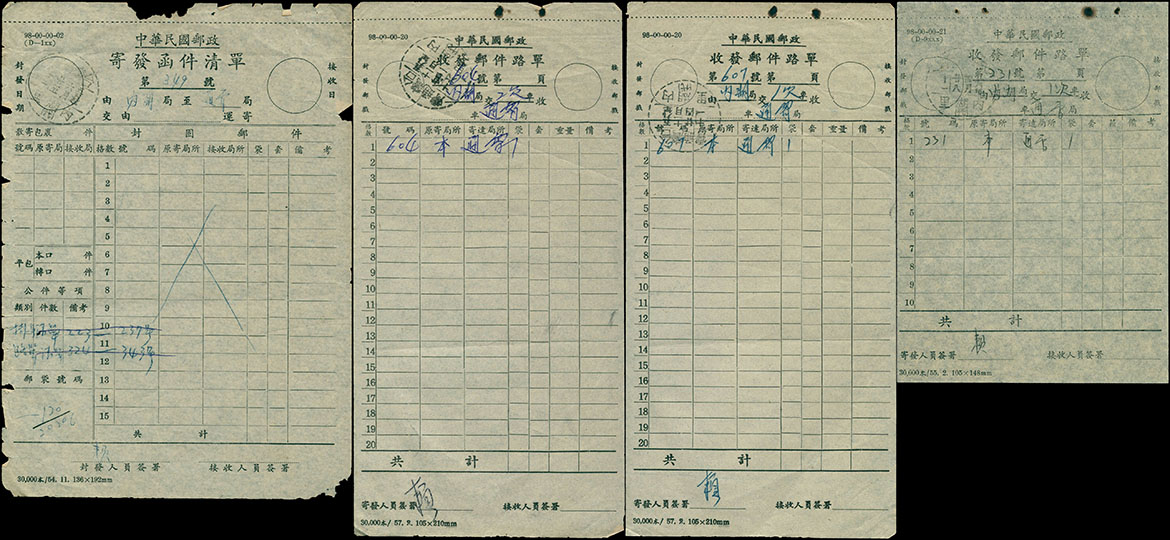 98-00-00-02
(D-1xx)
中華民國郵政
寄發函件清單
第 349 號
封發日期
接收日
由 內湖 局至 局
交由 運寄
散寄包裹 件
封固郵件
號碼 原寄局 接收局 格數 號碼 原寄局所 接收局所 袋 套 備考
1
2
3
4
5
平包 本口 件
轉口 件
6
7
公件等項
8
類別 件數 備考
9
10
223 237
11
324 343
12
郵袋號碼
13
14
15
共計
封發人員簽署
接收人員簽署
30,000本/54. 11. 136×192mm
98-00-00-20
中華民國郵政
收發郵件路單
第 604 號第 頁
封發郵戳
接收郵戳
由 內湖 局交 2次 車收
車 局
格數 號碼 原寄局所 寄達局所 袋 套 重量 備考
1 604 本 1
2
3
4
5
6
7
8
9
10
11
12
13
14
15
16
17
18
19
20
共計
寄發人員簽署 賴
接收人員簽署
30,000本/ 57. 2. 105×210mm
98-00-00-20
中華民國郵政
收發郵件路單
第 607 號第 頁
封發郵戳
接收郵戳
由 內湖 局交 1次 車收
車 局
格數 號碼 原寄局所 寄達局所 袋 套 重量 備考
1 607 本 1
2
3
4
5
6
7
8
9
10
11
12
13
14
15
16
17
18
19
20
共計
寄發人員簽署 賴
接收人員簽署
30,000本/ 57. 2. 105×210mm
98-00-00-21
中華民國郵政
收發郵件路單
第 231 號第 頁
封發郵戳
接收郵戳
由 內湖 局交 1次 車收
車 局
格數 號碼 原寄局所 寄達局所 袋 套 備考
1 231 本 1
2
3
4
5
6
7
8
9
10
共計
寄發人員簽署 賴
接收人員簽署
30,000本/55. 2. 105×148mm